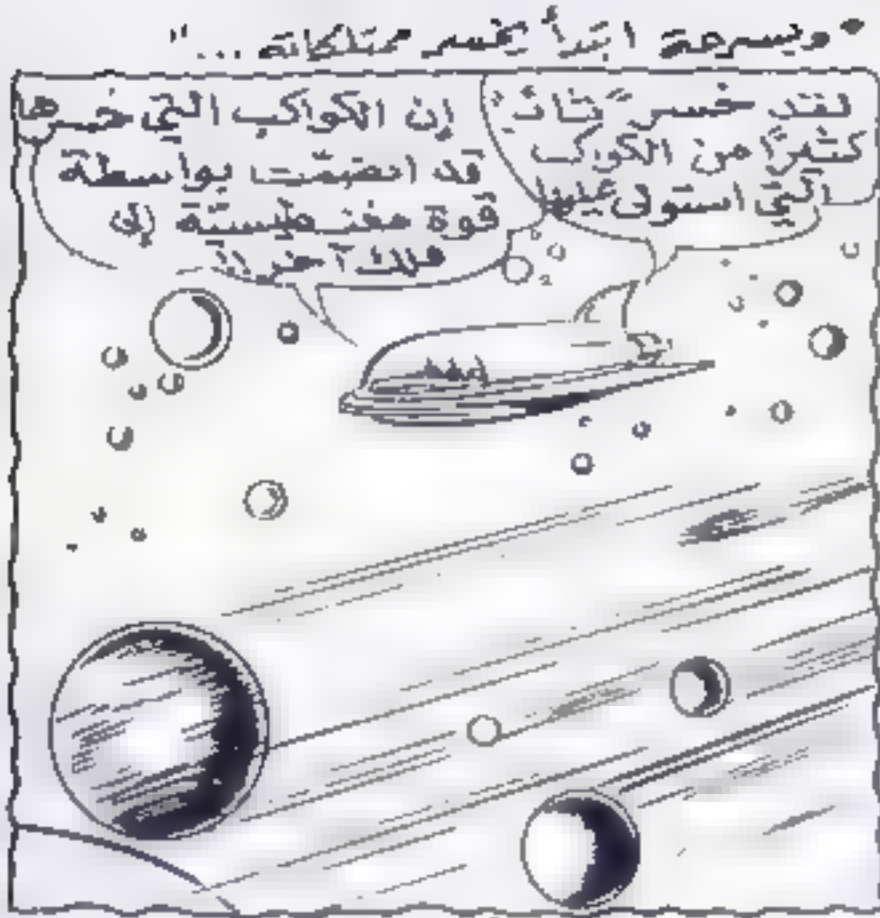 "وبسرعة ابتدأ يخسر ممتلكاته ..."
لقد خسر
كثيرًا من الكواكب
التي استولى عليها
إن الكواكب التي خسرها
قد انضمت بواسطة
قوة مغنطيسيّة إلى
فلك آخر!!